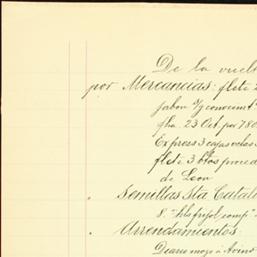 De la vuelt
por Mercancias: flete 2
jabon y conocimt.
fha 23 Oct por 780
Express 3 cajas velas
flete 3 btos proced
de Leon
Semillas Sta Catal
8 " hls frijol comp
Arrendamientos: